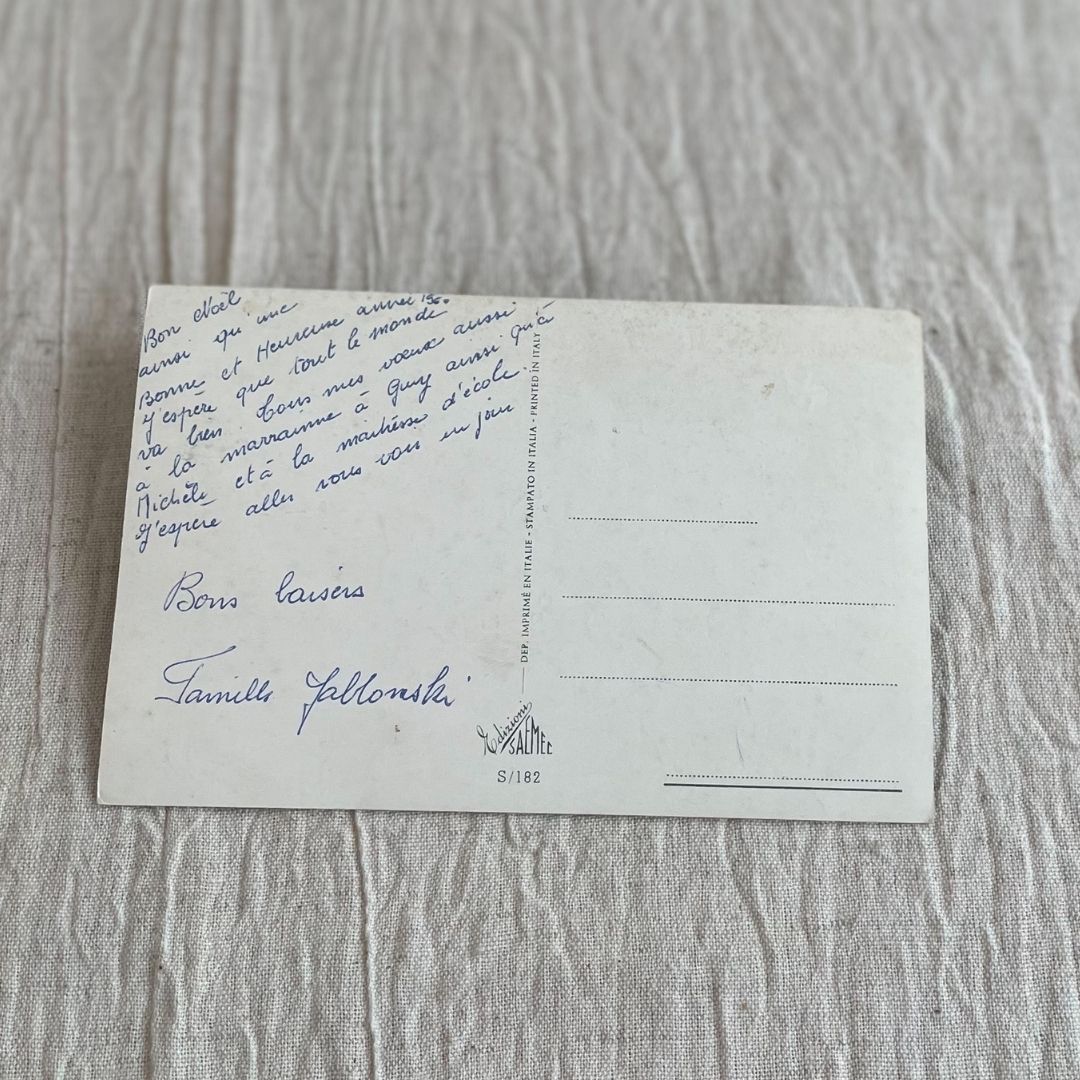 Bon Noël
ainsi qu'une
Bonne et Heureuse année
J'espère que tout le monde
va bien. Tous mes vœux aussi
à la marrainne à Guy ainsi qu'à
Michèle et à la maîtresse d'école.
J'espère aller vous voir un jour
Bons baisers
Famille Jablonski
DEP. IMPRIMÉ EN ITALIE - STAMPATO IN ITALIA - PRINTED IN ITALY
Edizioni
SAEMEC
S/182